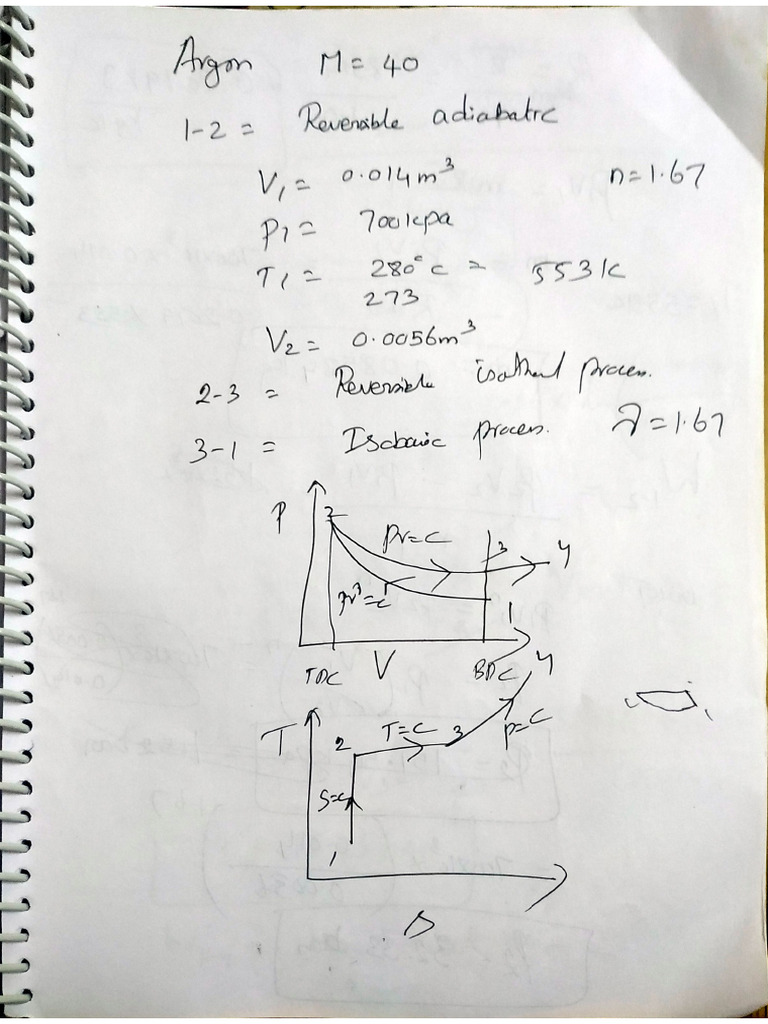 Argon M = 40
1-2 = Reversible adiabatic
V1 = 0.014m³ n=1.67
P1 = 700kpa
T1 = 280°C = 553K
273
V2 = 0.0056m³
2-3 = Reversible isothermal process.
3-1 = Isobaric process. γ=1.67
P 2 PV=C 3 4
PVγ=C 1
TDC V BDC 4
T 2 T=C 3 P=C
S=C
1
S